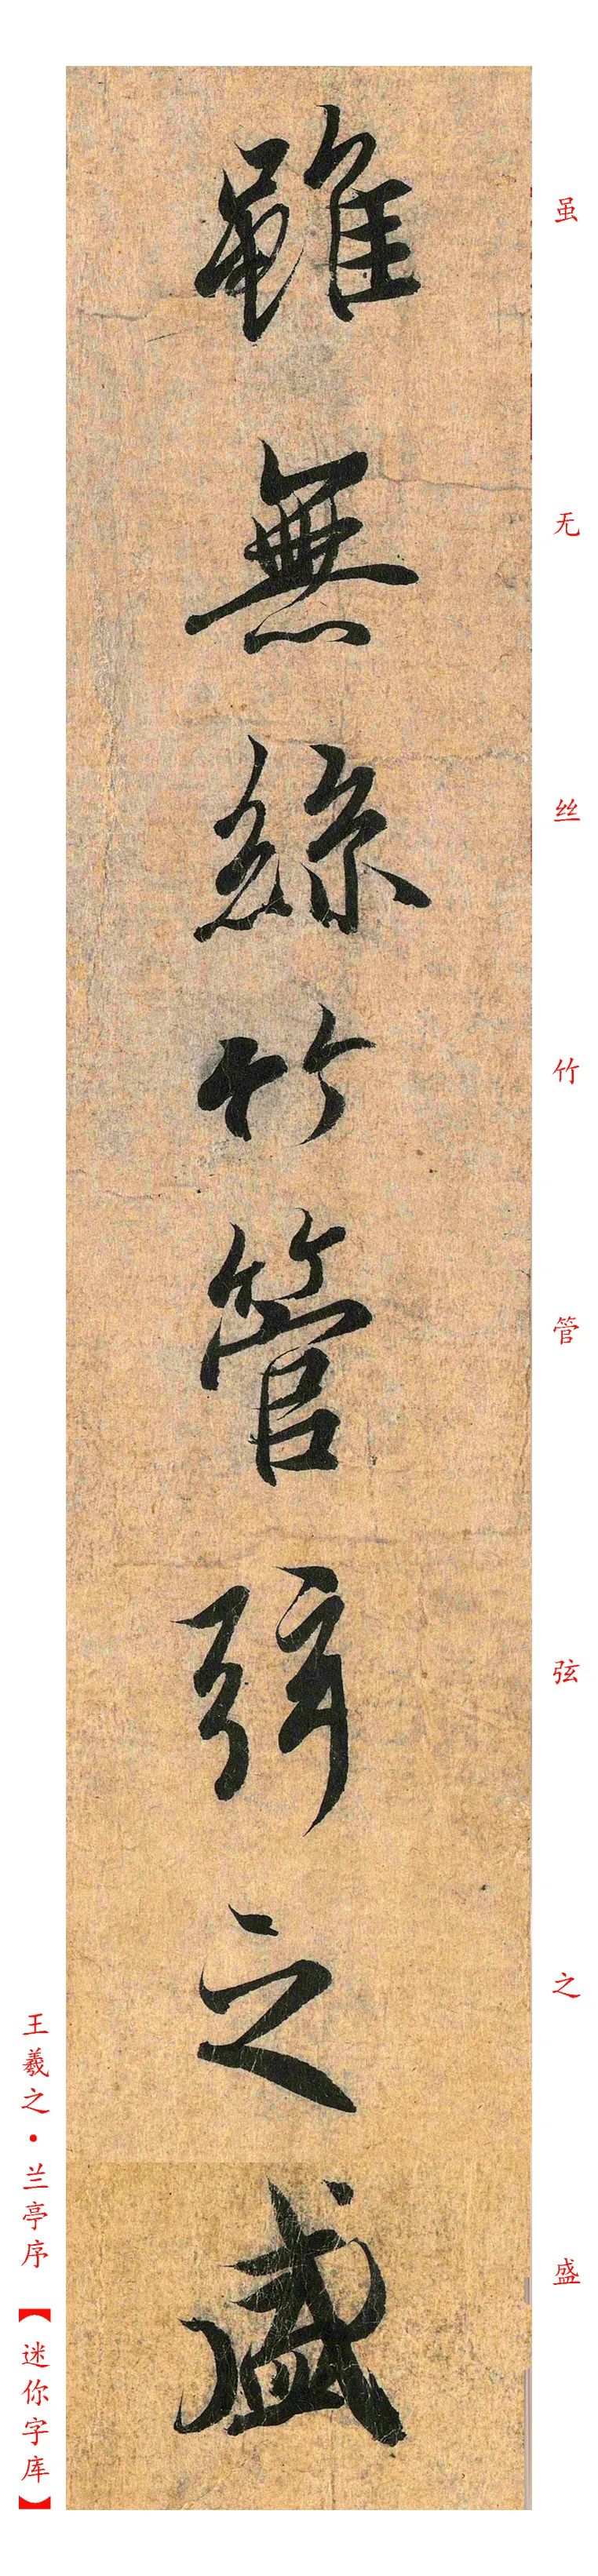 雖無絲竹管弦之盛
虽无丝竹管弦之盛
王羲之·兰亭序【迷你字库】